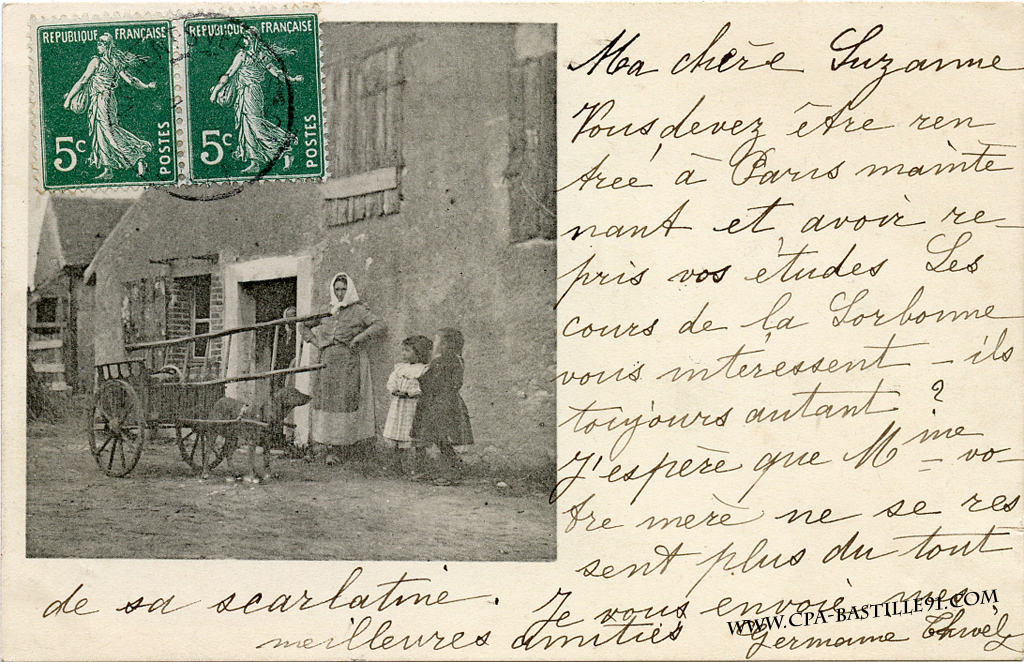 REPUBLIQUE FRANÇAISE
5c
POSTES
REPUBLIQUE FRANÇAISE
5c
POSTES
Ma chère Suzanne
Vous devez être ren
trée à Paris mainte
nant et avoir re-
pris vos études Les
cours de la Sorbonne
vous intéressent-ils
toujours autant ?
J'espère que Mme vo-
tre mère ne se res
sent plus du tout
de sa scarlatine. Je vous envoie mes
meilleures amitiés
Germaine
WWW.CPA-BASTILLE91.COM